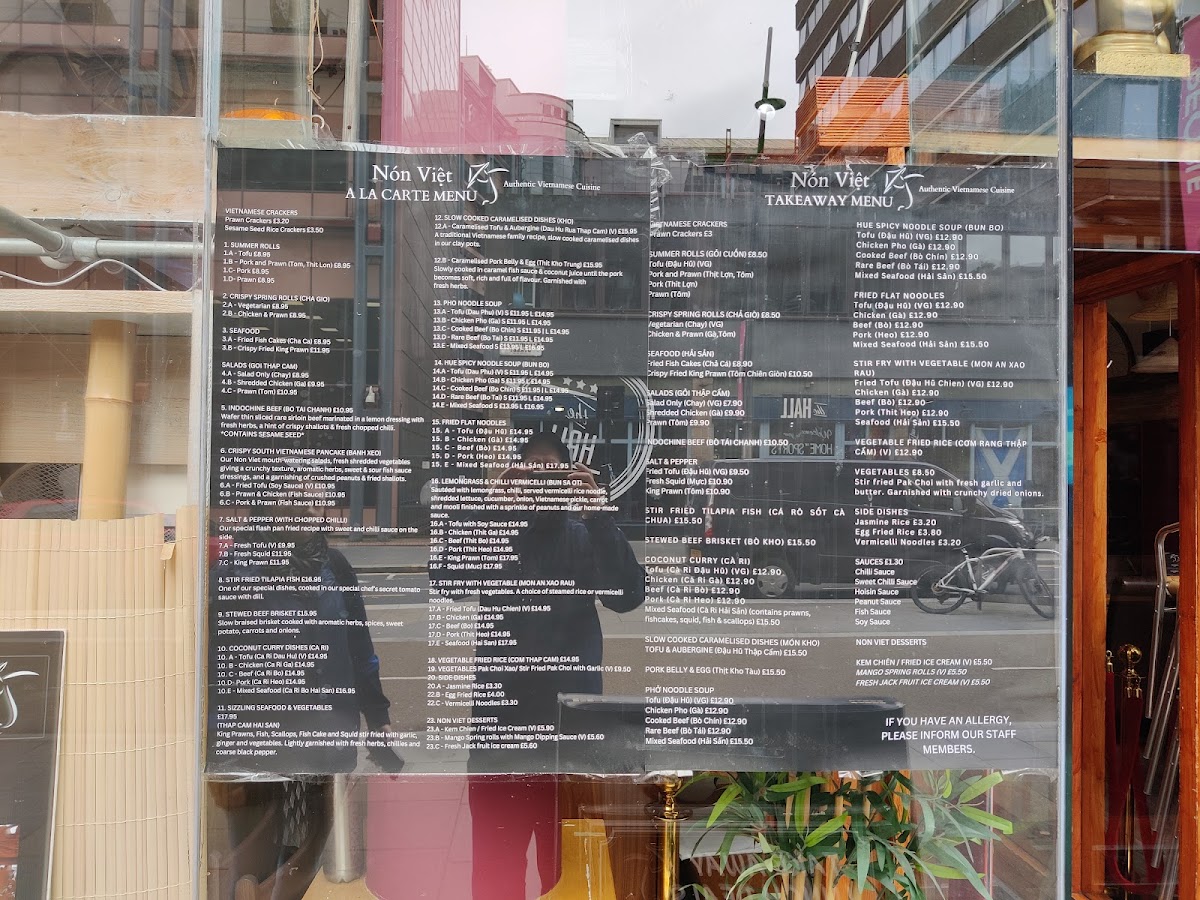 Nón Việt
A LA CARTE MENU
Authentic Vietnamese Cuisine
VIETNAMESE CRACKERS
Prawn Crackers £3.20
Sesame Seed Rice Crackers £3.50
1. SUMMER ROLLS
1.A - Tofu £8.95
1.B - Pork and Prawn (Tom, Thit Lon) £8.95
1.C- Pork £8.95
1.D- Prawn £8.95
2. CRISPY SPRING ROLLS (CHA GIO)
2.A - Vegetarian £8.95
2.B - Chicken & Prawn £8.95
3. SEAFOOD
3.A - Fried Fish Cakes (Cha Ca) £8.95
3.B - Crispy Fried King Prawn £11.95
SALADS (GOI THAP CAM)
4.A - Salad Only (Chay) £8.95
4.B - Shredded Chicken (Ga) £9.95
4.C - Prawn (Tom) £10.95
5. INDOCHINE BEEF (BO TAI CHANH) £10.95
Wafer thin sliced rare sirloin beef marinated in a lemon dressing with
fresh herbs, a hint of crispy shallots & fresh chopped chilli.
*CONTAINS SESAME SEED*
6. CRISPY SOUTH VIETNAMESE PANCAKE (BANH XEO)
Our Non Viet mouth-watering salads, fresh shredded vegetables
giving a crunchy texture, aromatic herbs, sweet & sour fish sauce
dressings, and a garnishing of crushed peanuts & fried shallots.
6.A - Fried Tofu (Soy Sauce) (V) £10.95
6.B - Prawn & Chicken (Fish Sauce) £10.95
6.C - Pork & Prawn (Fish Sauce) £10.95
7. SALT & PEPPER (WITH CHOPPED CHILLI)
Our special flash pan fried recipe with sweet and chilli sauce on the
side.
7.A - Fresh Tofu (V) £9.95
7.B - Fresh Squid £11.95
7.C - King Prawn £11.95
8. STIR FRIED TILAPIA FISH £16.95
One of our special dishes, cooked in our special chef's secret tomato
sauce with dill.
9. STEWED BEEF BRISKET £15.95
Slow braised brisket cooked with aromatic herbs, spices, sweet
potato, carrots and onions.
10. COCONUT CURRY DISHES (CA RI)
10. A - Tofu (Ca Ri Dau Hu) (V) £14.95
10. B - Chicken (Ca Ri Ga) £14.95
10. C - Beef (Ca Ri Bo) £14.95
10.D- Pork (Ca Ri Heo) £14.95
10.E - Mixed Seafood (Ca Ri Bo Hai San) £16.95
11. SIZZLING SEAFOOD & VEGETABLES
£17.95
(THAP CAM HAI SAN)
King Prawns, Fish, Scallops, Fish Cake and Squid stir fried with garlic,
ginger and vegetables. Lightly garnished with fresh herbs, chillies and
coarse black pepper.
12. SLOW COOKED CARAMELISED DISHES (KHO)
12.A - Caramelised Tofu & Aubergine (Dau Hu Rua Thap Cam) (V) £15.95
A traditional Vietnamese family recipe, slow cooked caramelised dishes
in our clay pots.
12.B - Caramelised Pork Belly & Egg (Thit Kho Trung) £15.95
Slowly cooked in caramel fish sauce & coconut juice until the pork
becomes soft, rich and full of flavour. Garnished with
fresh herbs.
13. PHO NOODLE SOUP
13.A - Tofu (Dau Phu) (V) S £11.95 | L £14.95
13.B - Chicken Pho (Ga) S £11.95 | L £14.95
13.C - Cooked Beef (Bo Chin) S £11.95 | L £14.95
13.D - Rare Beef (Bo Tai) S £11.95 | L £14.95
13.E - Mixed Seafood S £13.95 | L £16.95
14. HUE SPICY NOODLE SOUP (BUN BO)
14.A - Tofu (Dau Phu) (V) S £11.95 | L £14.95
14.B - Chicken Pho (Ga) S £11.95 | L £14.95
14.C - Cooked Beef (Bo Chin) S £11.95 | L £14.95
14.D - Rare Beef (Bo Tai) S £11.95 | L £14.95
14.E - Mixed Seafood S £13.95 | L £16.95
15. FRIED FLAT NOODLES
15. A - Tofu (Đậu Hũ) £14.95
15. B - Chicken (Gà) £14.95
15. C - Beef (Bò) £14.95
15. D - Pork (Heo) £14.95
15. E - Mixed Seafood (Hải Sản) £17.95
16. LEMONGRASS & CHILLI VERMICELLI (BUN SA OT)
Sautéed with lemongrass, chilli, served vermicelli rice noodle,
shredded lettuce, cucumber, onion, Vietnamese pickle, carrot
and mooli finished with a sprinkle of peanuts and our home-made
sauce.
16.A - Tofu with Soy Sauce £14.95
16.B - Chicken (Thit Ga) £14.95
16.C - Beef (Thit Bo) £14.95
16.D - Pork (Thit Heo) £14.95
16.E - King Prawn (Tom) £17.95
16.F - Squid (Muc) £17.95
17. STIR FRY WITH VEGETABLE (MON AN XAO RAU)
Stir fry with fresh vegetables. A choice of steamed rice or vermicelli
noodles.
17.A - Fried Tofu (Dau Hu Chien) (V) £14.95
17.B - Chicken (Ga) £14.95
17.C - Beef (Bo) £14.95
17.D - Pork (Thit Heo) £14.95
17.E - Seafood (Hai San) £17.95
18. VEGETABLE FRIED RICE (COM THAP CAM) £14.95
19. VEGETABLES Pak Choi Xao/ Stir Fried Pak Choi with Garlic (V) £9.50
20. SIDE DISHES
20.A - Jasmine Rice £3.30
22.B - Egg Fried Rice £4.00
22.C - Vermicelli Noodles £3.30
23. NON VIET DESSERTS
23.A - Kem Chien / Fried Ice Cream (V) £5.90
23.B - Mango Spring rolls with Mango Dipping Sauce (V) £5.60
23.C - Fresh Jack fruit ice cream £5.60
Nón Việt
TAKEAWAY MENU
Authentic Vietnamese Cuisine
VIETNAMESE CRACKERS
Prawn Crackers £3
SUMMER ROLLS (GỎI CUỐN) £8.50
Tofu (Đậu Hũ) (VG)
Pork and Prawn (Thịt Lợn, Tôm)
Pork (Thịt Lợn)
Prawn (Tôm)
CRISPY SPRING ROLLS (CHẢ GIÒ) £8.50
Vegetarian (Chay) (VG)
Chicken & Prawn (Gà,Tôm)
SEAFOOD (HẢI SẢN)
Fried Fish Cakes (Chả Cá) £8.90
Crispy Fried King Prawn (Tôm Chiên Giòn) £10.50
SALADS (GỎI THẬP CẨM)
Salad Only (Chay) (VG) £7.90
Shredded Chicken (Gà) £9.90
Prawn (Tôm) £9.90
INDOCHINE BEEF (BÒ TÁI CHANH) £10.50
SALT & PEPPER
Fried Tofu (Đậu Hũ) (VG) £9.50
Fresh Squid (Mực) £10.90
King Prawn (Tôm) £10.90
STIR FRIED TILAPIA FISH (CÁ RÔ SỐT CÀ
CHUA) £15.50
STEWED BEEF BRISKET (BÒ KHO) £15.50
COCONUT CURRY (CÀ RI)
Tofu (Cà Ri Đậu Hũ) (VG) £12.90
Chicken (Cà Ri Gà) £12.90
Beef (Cà Ri Bò) £12.90
Pork (Cà Ri Heo) £12.90
Mixed Seafood (Cà Ri Hải Sản) (contains prawns,
fishcakes, squid, fish & scallops) £15.50
SLOW COOKED CARAMELISED DISHES (MÓN KHO)
TOFU & AUBERGINE (Đậu Hũ Thập Cẩm) £15.50
PORK BELLY & EGG (Thịt Kho Tàu) £15.50
PHỞ NOODLE SOUP
Tofu (Đậu Hũ) (VG) £12.90
Chicken Pho (Gà) £12.90
Cooked Beef (Bò Chín) £12.90
Rare Beef (Bò Tái) £12.90
Mixed Seafood (Hải Sản) £15.50
HUE SPICY NOODLE SOUP (BUN BO)
Tofu (Đậu Hũ) (VG) £12.90
Chicken Pho (Gà) £12.90
Cooked Beef (Bò Chín) £12.90
Rare Beef (Bò Tái) £12.90
Mixed Seafood (Hải Sản) £15.50
FRIED FLAT NOODLES
Tofu (Đậu Hũ) (VG) £12.90
Chicken (Gà) £12.90
Beef (Bò) £12.90
Pork (Heo) £12.90
Mixed Seafood (Hải Sản) £15.50
STIR FRY WITH VEGETABLE (MON AN XAO
RAU)
Fried Tofu (Đậu Hũ Chien) (VG) £12.90
Chicken (Gà) £12.90
Beef (Bò) £12.90
Pork (Thịt Heo) £12.90
Seafood (Hải Sản) £15.50
VEGETABLE FRIED RICE (CƠM RANG THẬP
CẨM) (V) £12.90
VEGETABLES £8.50
Stir fried Pak Choi with fresh garlic and
butter. Garnished with crunchy dried onions.
SIDE DISHES
Jasmine Rice £3.20
Egg Fried Rice £3.80
Vermicelli Noodles £3.20
SAUCES £1.30
Chilli Sauce
Sweet Chilli Sauce
Hoisin Sauce
Peanut Sauce
Fish Sauce
Soy Sauce
NON VIET DESSERTS
KEM CHIÊN / FRIED ICE CREAM (V) £5.50
MANGO SPRING ROLLS (V) £5.50
FRESH JACK FRUIT ICE CREAM (V) £5.50
IF YOU HAVE AN ALLERGY,
PLEASE INFORM OUR STAFF
MEMBERS.